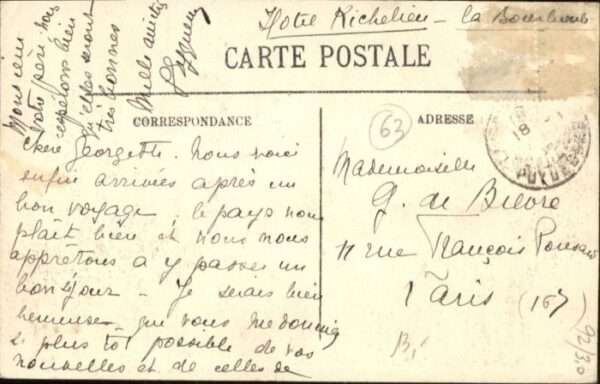 Hotel Richelieu - la Bourboule
CARTE POSTALE
CORRESPONDANCE
ADRESSE
63
Chère Georgette. Nous voici
enfin arrivées après un
bon voyage, le pays nous
plaît bien et nous nous
apprêtons à y passer un
bon séjour - Je serais bien
heureuse que vous me donniez
le plus tôt possible de vos
nouvelles et de celles de
Monsieur
votre père nous
espérons bien
qu'elles seront
très bonnes
Mille amitiés
Mademoiselle
G. de Bièvre
11 rue François Ponsard
Paris (16e)
18
PUY DE
92/30